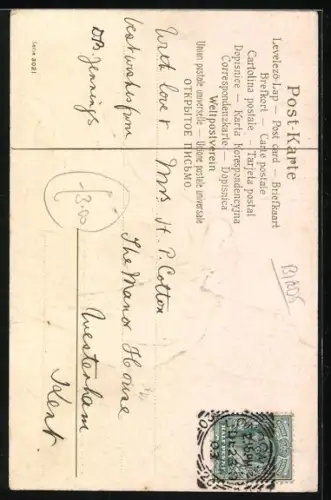 Post-Karte
Levelező-Lap — Post card — Briefkaart
Brefkort — Carte postale
Cartolina postale — Tarjeta postal
Dopisnice — Karta korespondencyjna
Correspondenzkarte — Dopisnica
Weltpostverein
Union postale universelle — Unione postale universale
ОТКРЫТОЕ ПИСЬМО.
With love &
best wishes from
D.B. Jennings
Mrs H. P. Cotton
The Manor House
Westerham
Kent
Serie 3021